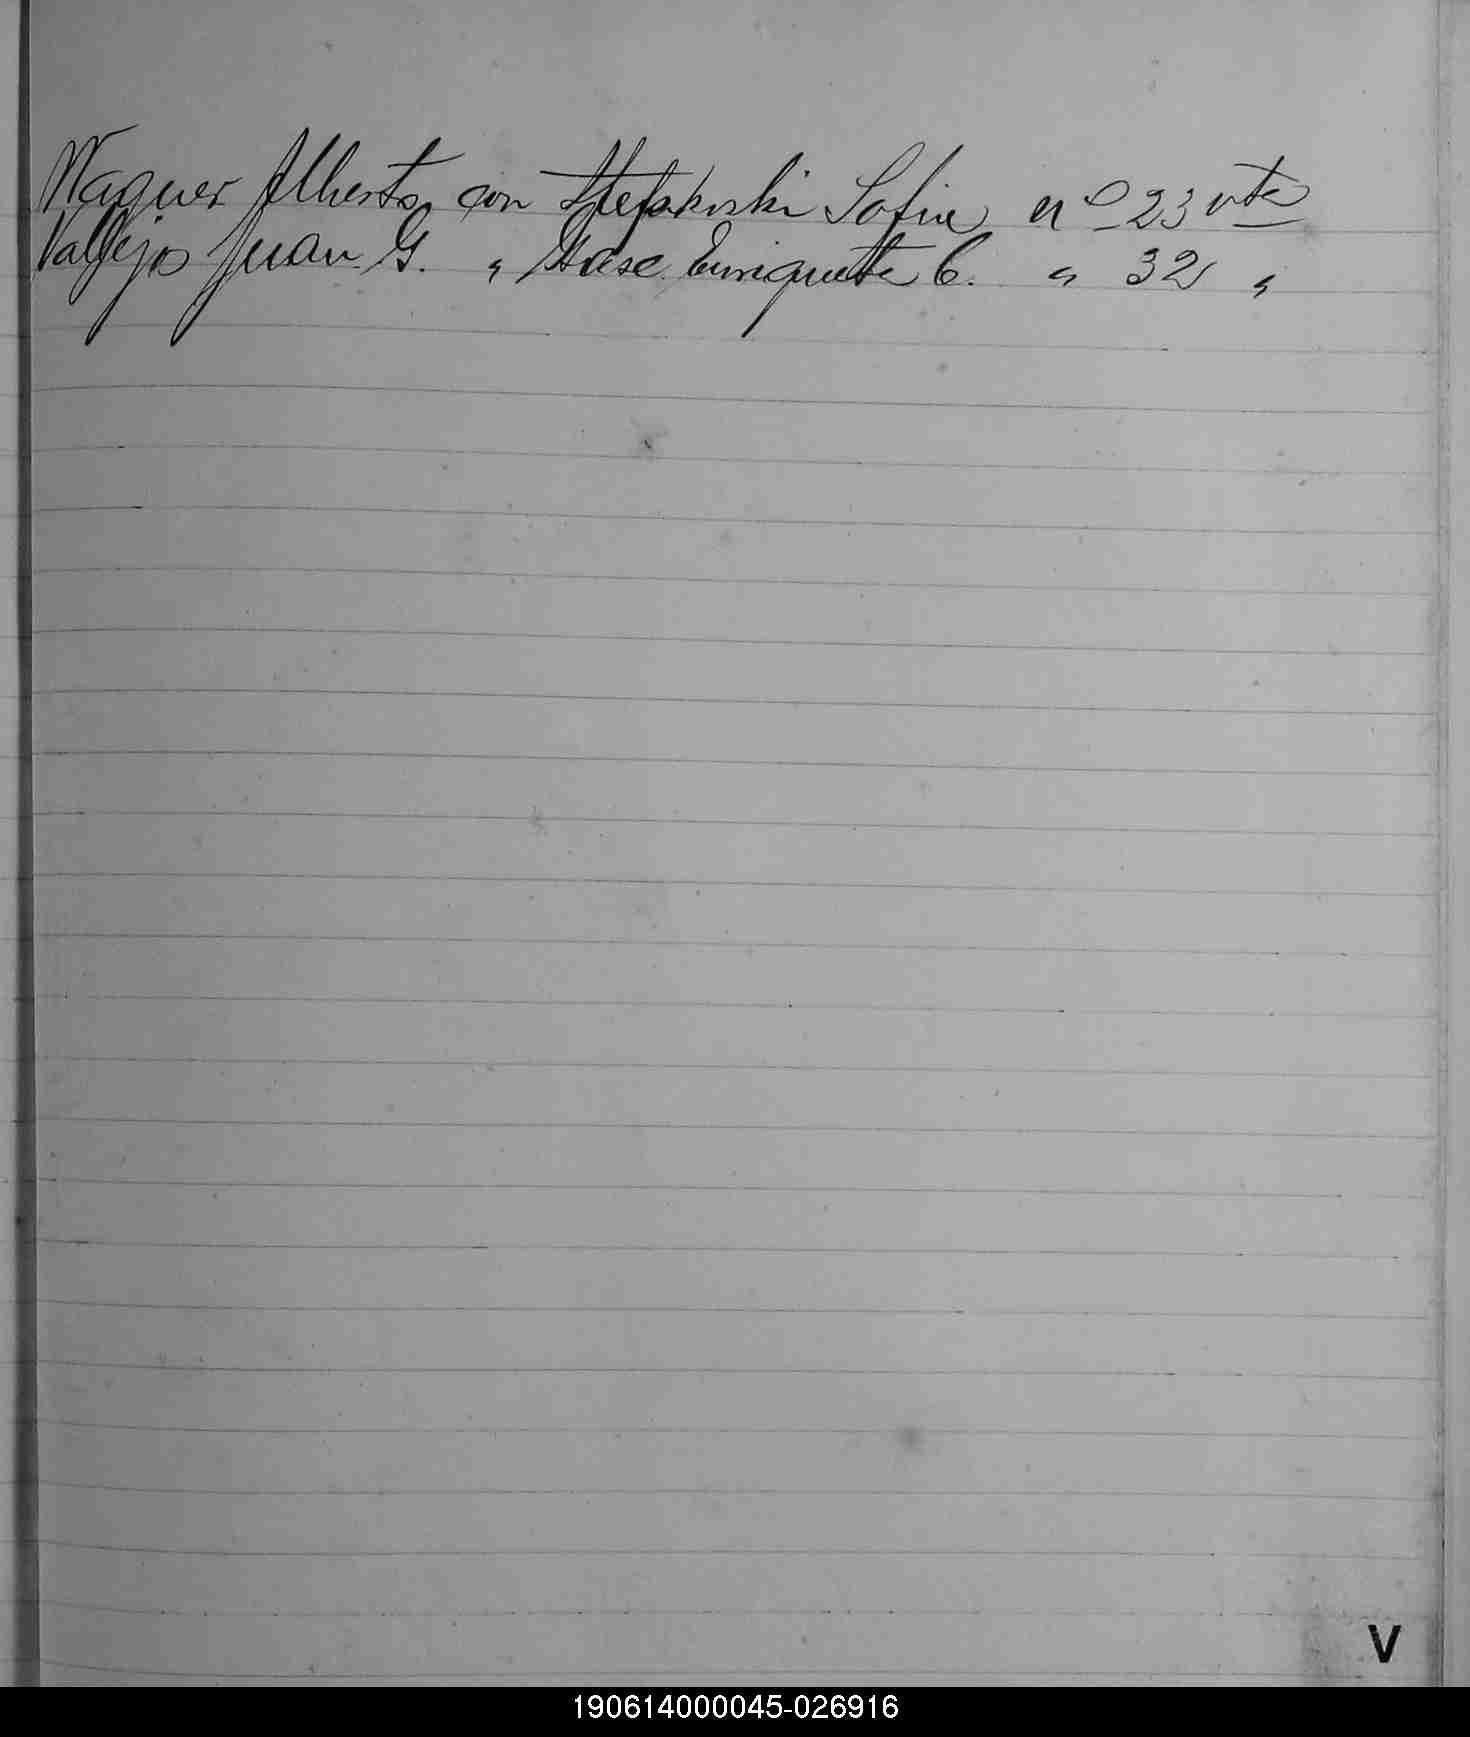 Wagner Alberto con Stefakoski Sofia nº 23 vta
Vallejos Juan G. " Hase Enriqueta C. " 32 "
V
190614000045-026916